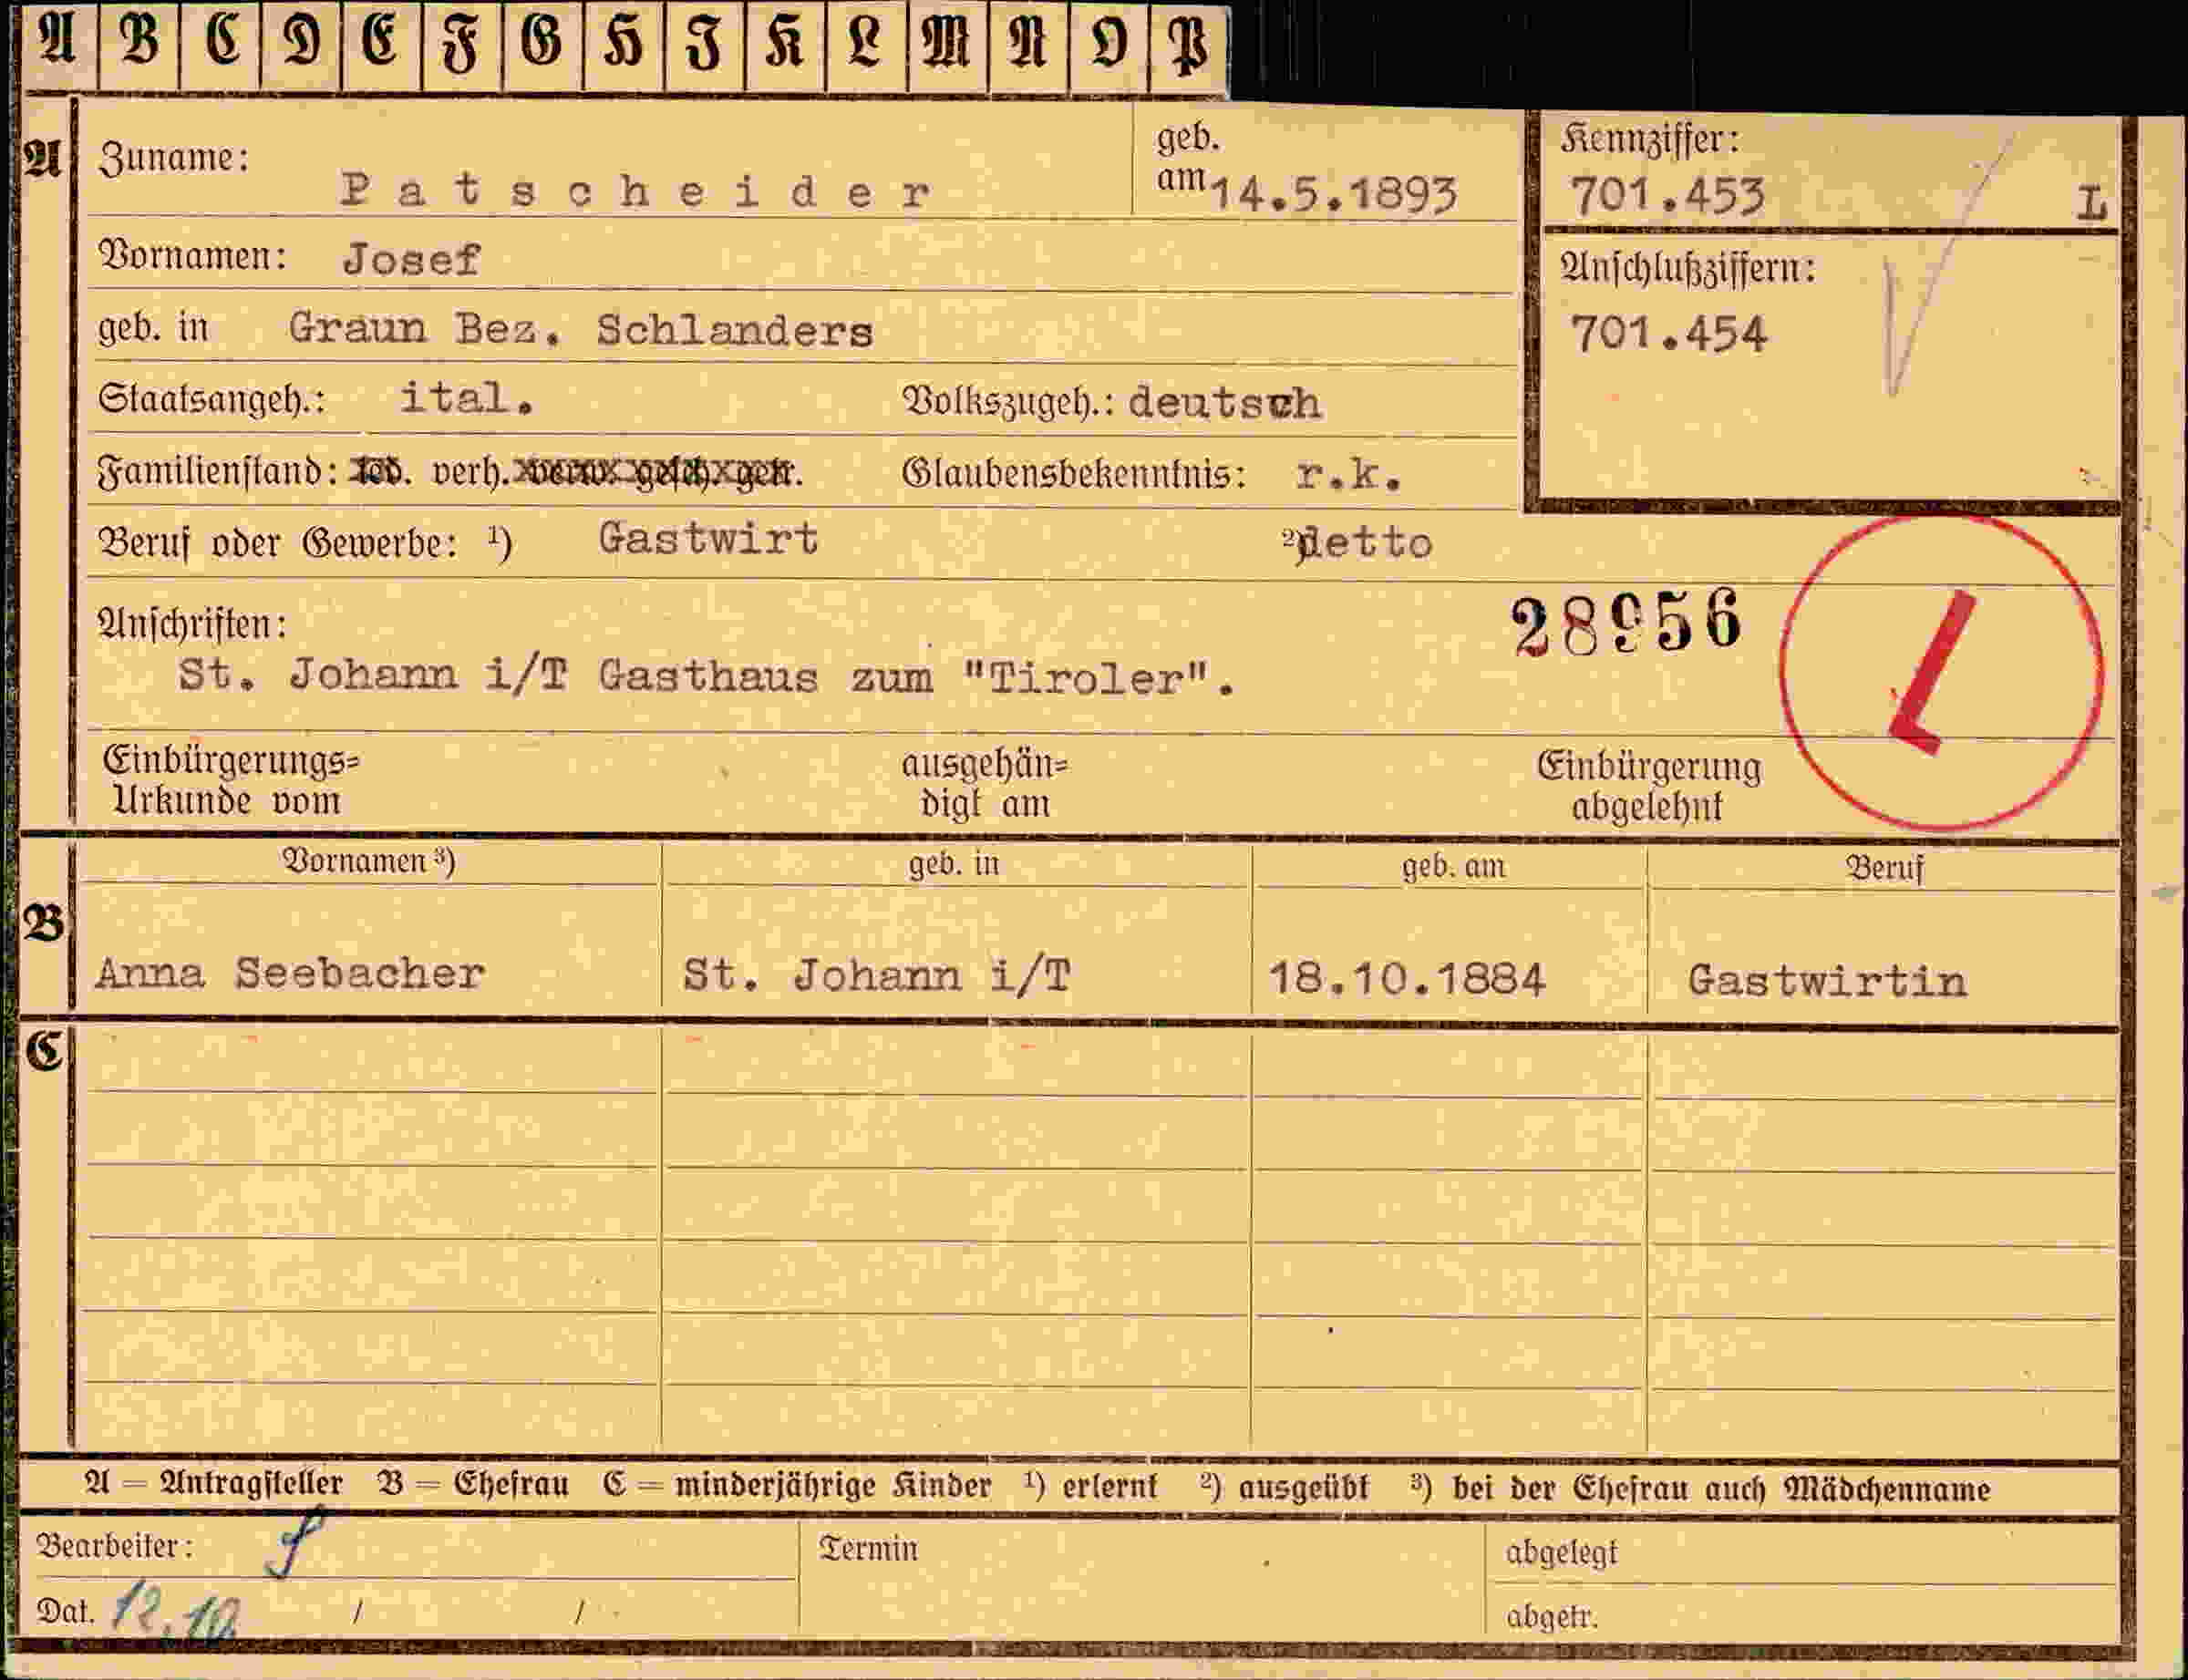 A B C D E F G H I K L M N O P
A
Zuname: Patscheider
geb. am 14.5.1893
Kennziffer:
701.453 L
Vornamen: Josef
Anschlußziffern:
701.454
geb. in Graun Bez. Schlanders
Staatsangeh.: ital. Volkszugeh.: deutsch
Familienstand: led. verh. verw. gesch. getr. Glaubensbekenntnis: r.k.
Beruf oder Gewerbe: ¹) Gastwirt ²) detto
28956
L
Anschriften:
St. Johann i/T Gasthaus zum "Tiroler".
Einbürgerungs= ausgehän= Einbürgerung
Urkunde vom digt am abgelehnt
Vornamen ³) geb. in geb. am Beruf
B
Anna Seebacher St. Johann i/T 18.10.1884 Gastwirtin
C
A = Antragsteller B = Ehefrau C = minderjährige Kinder ¹) erlernt ²) ausgeübt ³) bei der Ehefrau auch Mädchenname
Bearbeiter: Termin abgelegt
Dat. 12.10. / / abgetr.